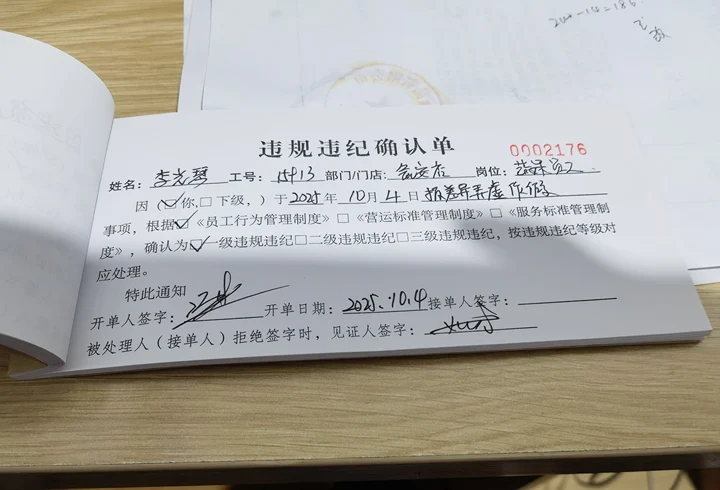 200-14=186.
违规违纪确认单
0002176
姓名：李光琴 工号：15913 部门/门店：吉安店 岗位：蔬果员工
因（☑你,□下级，）于2025年10月4日报差异弄虚作假
事项，根据☑《员工行为管理制度》□《营运标准管理制度》□《服务标准管理制
度》，确认为☑一级违规违纪□二级违规违纪□三级违规违纪，按违规违纪等级对
应处理。
特此通知
开单人签字： 开单日期：2025.10.4 接单人签字：
被处理人（接单人）拒绝签字时，见证人签字：